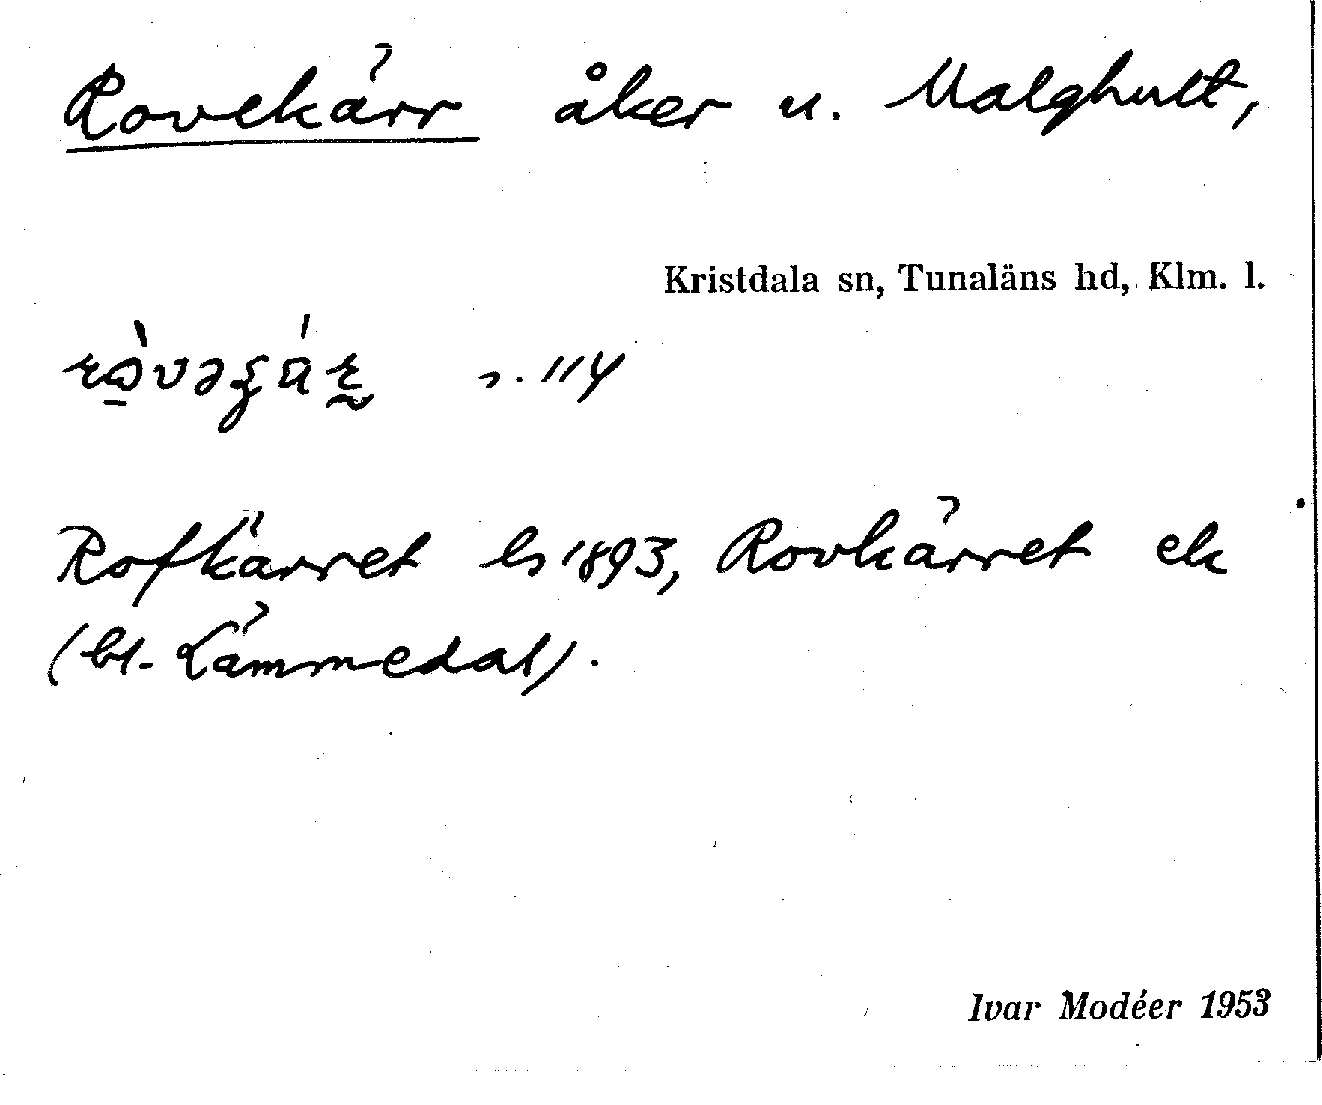 Rovekärr åker u. Malghult,
Kristdala sn, Tunaläns hd, Klm. l.
s. 114
Rofkärret ls 1893, Rovkärret ek
(bl. Lämmedal).
Ivar Modéer 1953